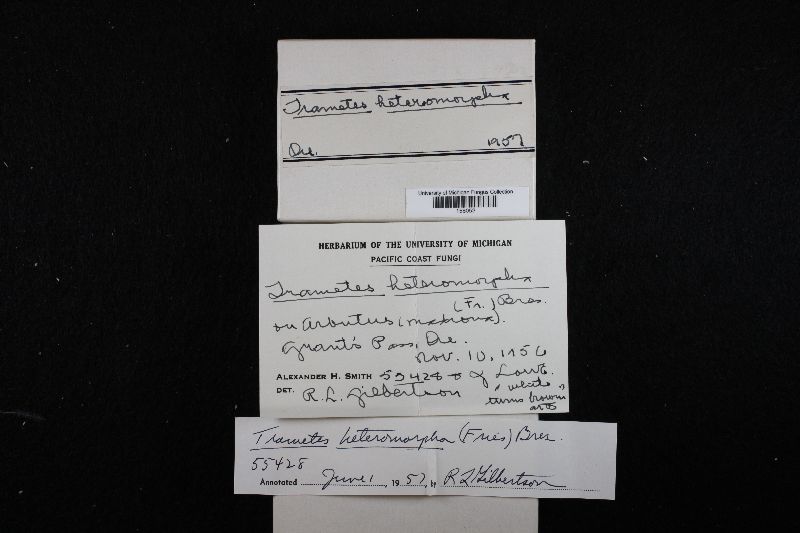 Trametes heteromorpha
Ore. 1957
University of Michigan Fungus Collection
HERBARIUM OF THE UNIVERSITY OF MICHIGAN
PACIFIC COAST FUNGI
Trametes heteromorpha
(Fr.) Bres.
on Arbutus (madrona).
Grant's Pass, Ore.
Nov. 10, 1956
ALEXANDER H. SMITH 55428
DET. R. L. Gilbertson
"white
turns brown"
Trametes heteromorpha (Fries) Bres.
55428
Annotated June 1, 1957, by R L Gilbertson